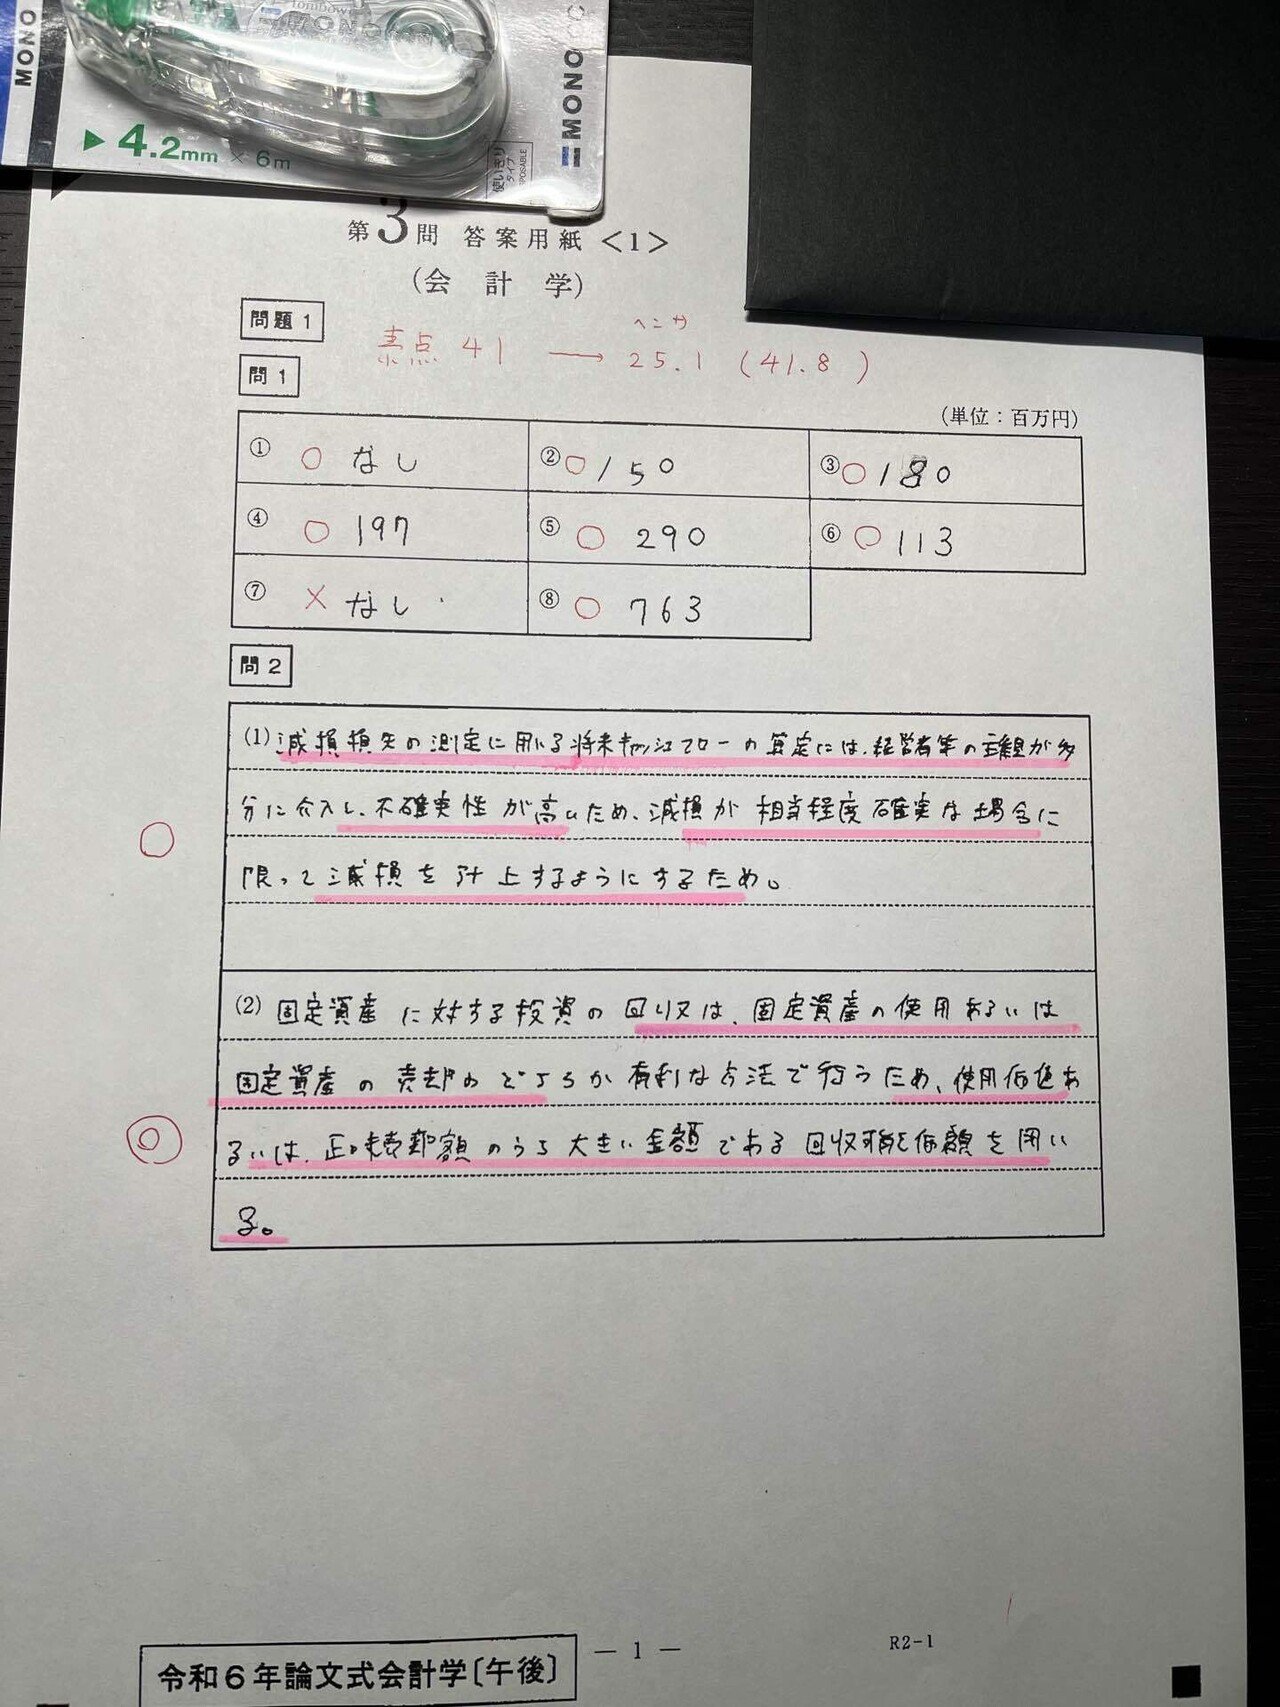 MONO
tombow
MONO
MONO
4.2mm × 6m
使いきり
タイプ
第3問 答案用紙<1>
(会計学)
問題1
ヘンサ
素点 41 → 25.1 (41.8)
問1
(単位:百万円)
① ○ なし ② ○ 150 ③ ○ 180
④ ○ 197 ⑤ ○ 290 ⑥ ○ 113
⑦ × なし ⑧ ○ 763
問2
(1) 減損損失の測定に用いる将来キャッシュフローの算定には、経営者等の主観が多
分に介入し、不確実性が高いため、減損が相当程度確実な場合に
限って減損を計上するようにするため。
(2) 固定資産に対する投資の回収は、固定資産の使用あるいは
固定資産の売却のどちらか有利な方法で行うため、使用価値あ
るいは、正味売却額のうち大きい金額である回収可能価額を用い
る。
令和6年論文式会計学〔午後〕
― 1 ―
R2-1